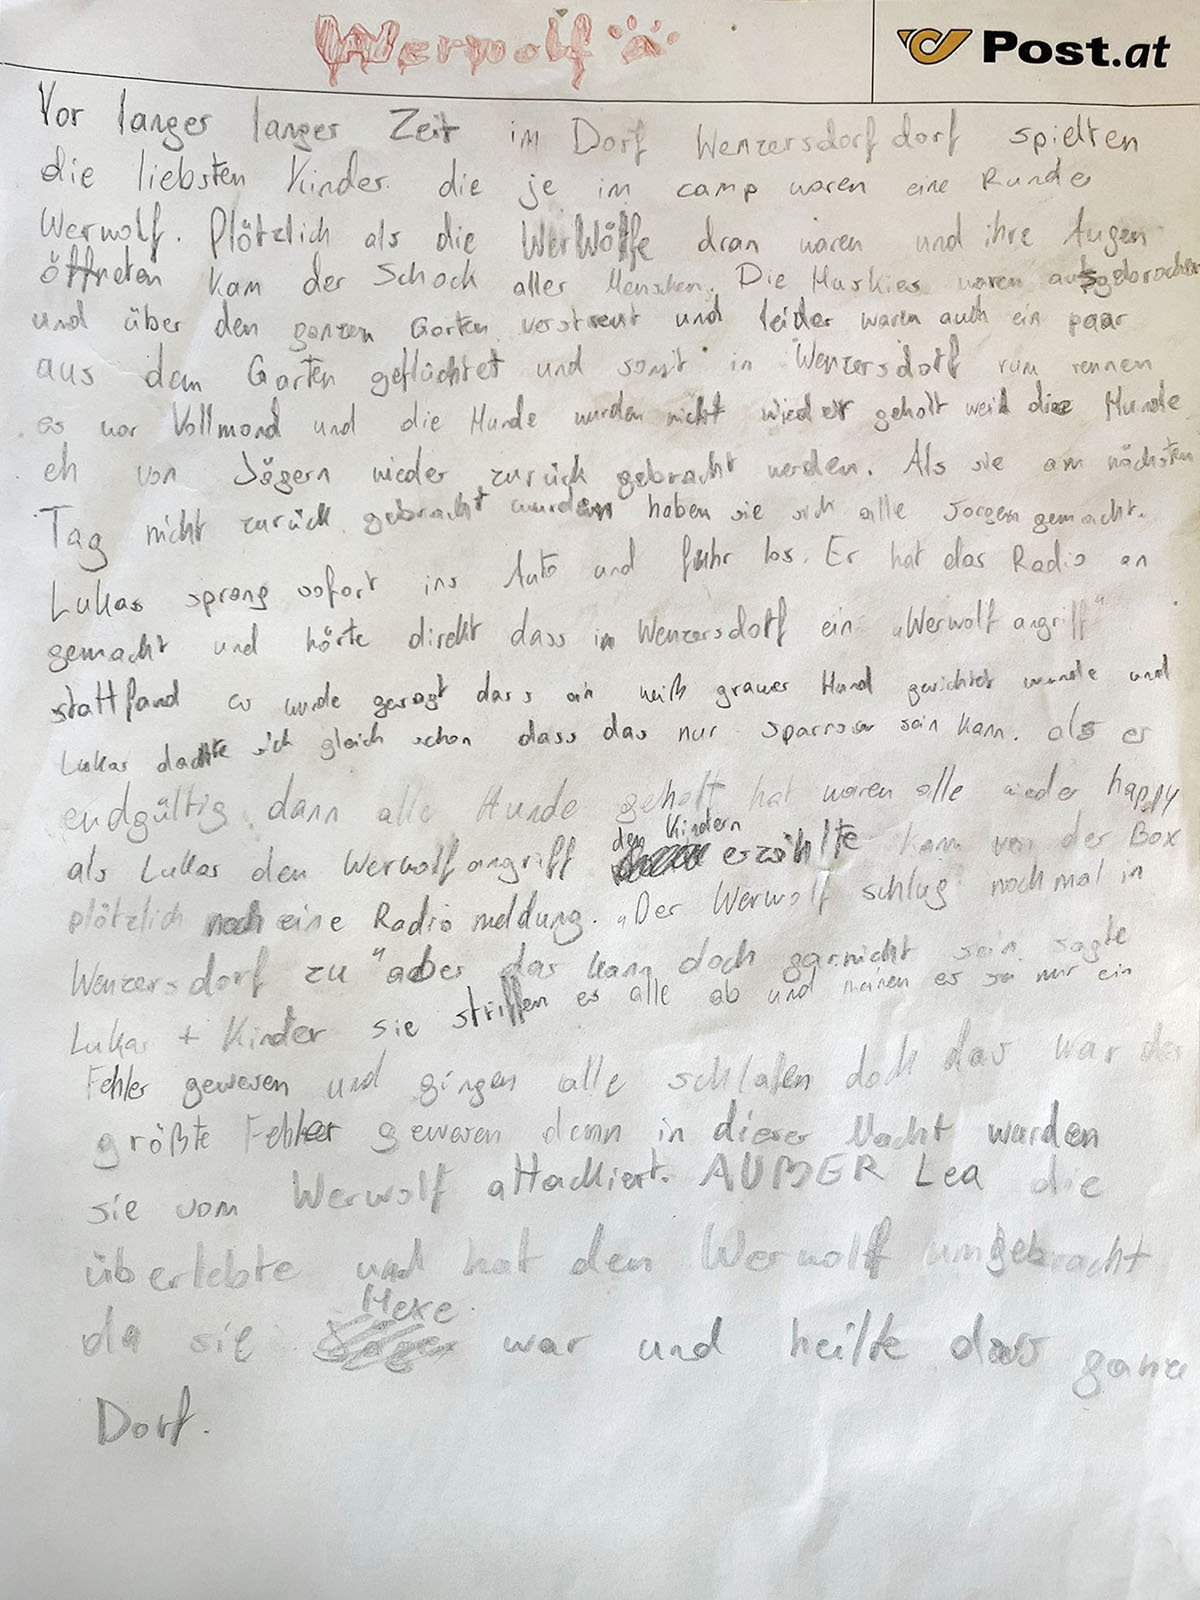 Werwolf
Post.at
Vor langer langer Zeit im Dorf Wenzersdorf dorf spielten
die liebsten Kinder die je im camp waren eine Runde
Werwolf. Plötzlich als die WerWölfe dran waren und ihre Augen
öffneten kam der Schock aller Menschen. Die Huskies waren ausgebrochen
und über den ganzen Garten verstreut und leider waren auch ein paar
aus dem Garten geflüchtet und somit in Wenzersdorf rum rennen
es war Vollmond und die Hunde wurden nicht wieder geholt weil die Hunde
eh von Jägern wieder zurück gebracht werden. Als sie am nächsten
Tag nicht zurück gebracht wurden haben sie sich alle sorgen gemacht.
Lukas sprang sofort ins Auto und fuhr los. Er hat das Radio an
gemacht und hörte direkt dass in Wenzersdorf ein „Werwolf angriff"
stattfand es wurde gesagt dass ein weiß grauer Hund gesichtet wurde und
Lukas dachte sich gleich schon dass das nur sparrow sein kann. als er
endgültig dann alle Hunde geholt hat waren alle wieder happy
als Lukas den Werwolf angriff den Kindern erzählte kam von der Box
plötzlich noch eine Radio meldung. „Der Werwolf schlug noch mal in
Wenzersdorf zu" aber das kann doch garnicht sein sagte
Lukas + Kinder sie striffen es alle ab und meinen es sei nur ein
Fehler gewesen und gingen alle schlafen doch das war der
größte Fehler gewesen denn in dieser Nacht wurden
sie vom Werwolf attackiert. AUßER Lea die
überlebte und hat den Werwolf umgebracht
da sie Hexe war und heilte das ganze
Dorf.